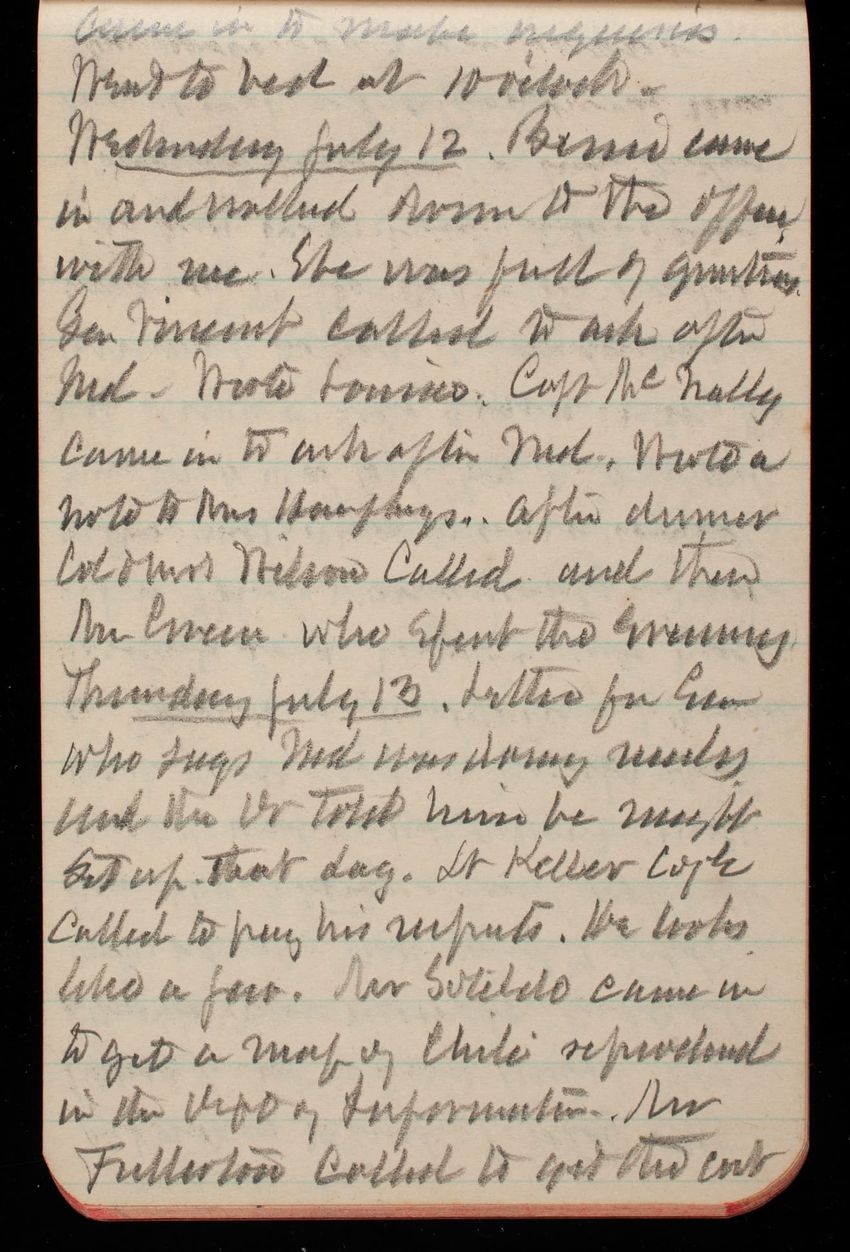 came in to make inquiries.
Went to bed at 10 oclock.
Wednesday July 12. Bessie came
in and walked down to the office
with me. She was full of questions.
Gen Vincent called to ask after
Ned. Wrote Louise. Capt McNally
came in to ask after Ned. Wrote a
note to Mrs Humphreys.. After dinner
Col & Mrs Wilson Called and then
Mr Green who Spent the Evening
Thursday July 13. Letter for
who says Ned was doing nicely
and the Dr Told him he might
Set up that day. Lt Keller
Called to pay his respects. He looks
like a Jew. Mr came in
to get a map of Chili reproduced
in the Dept of Information. Mr
Fullerton Called to get the